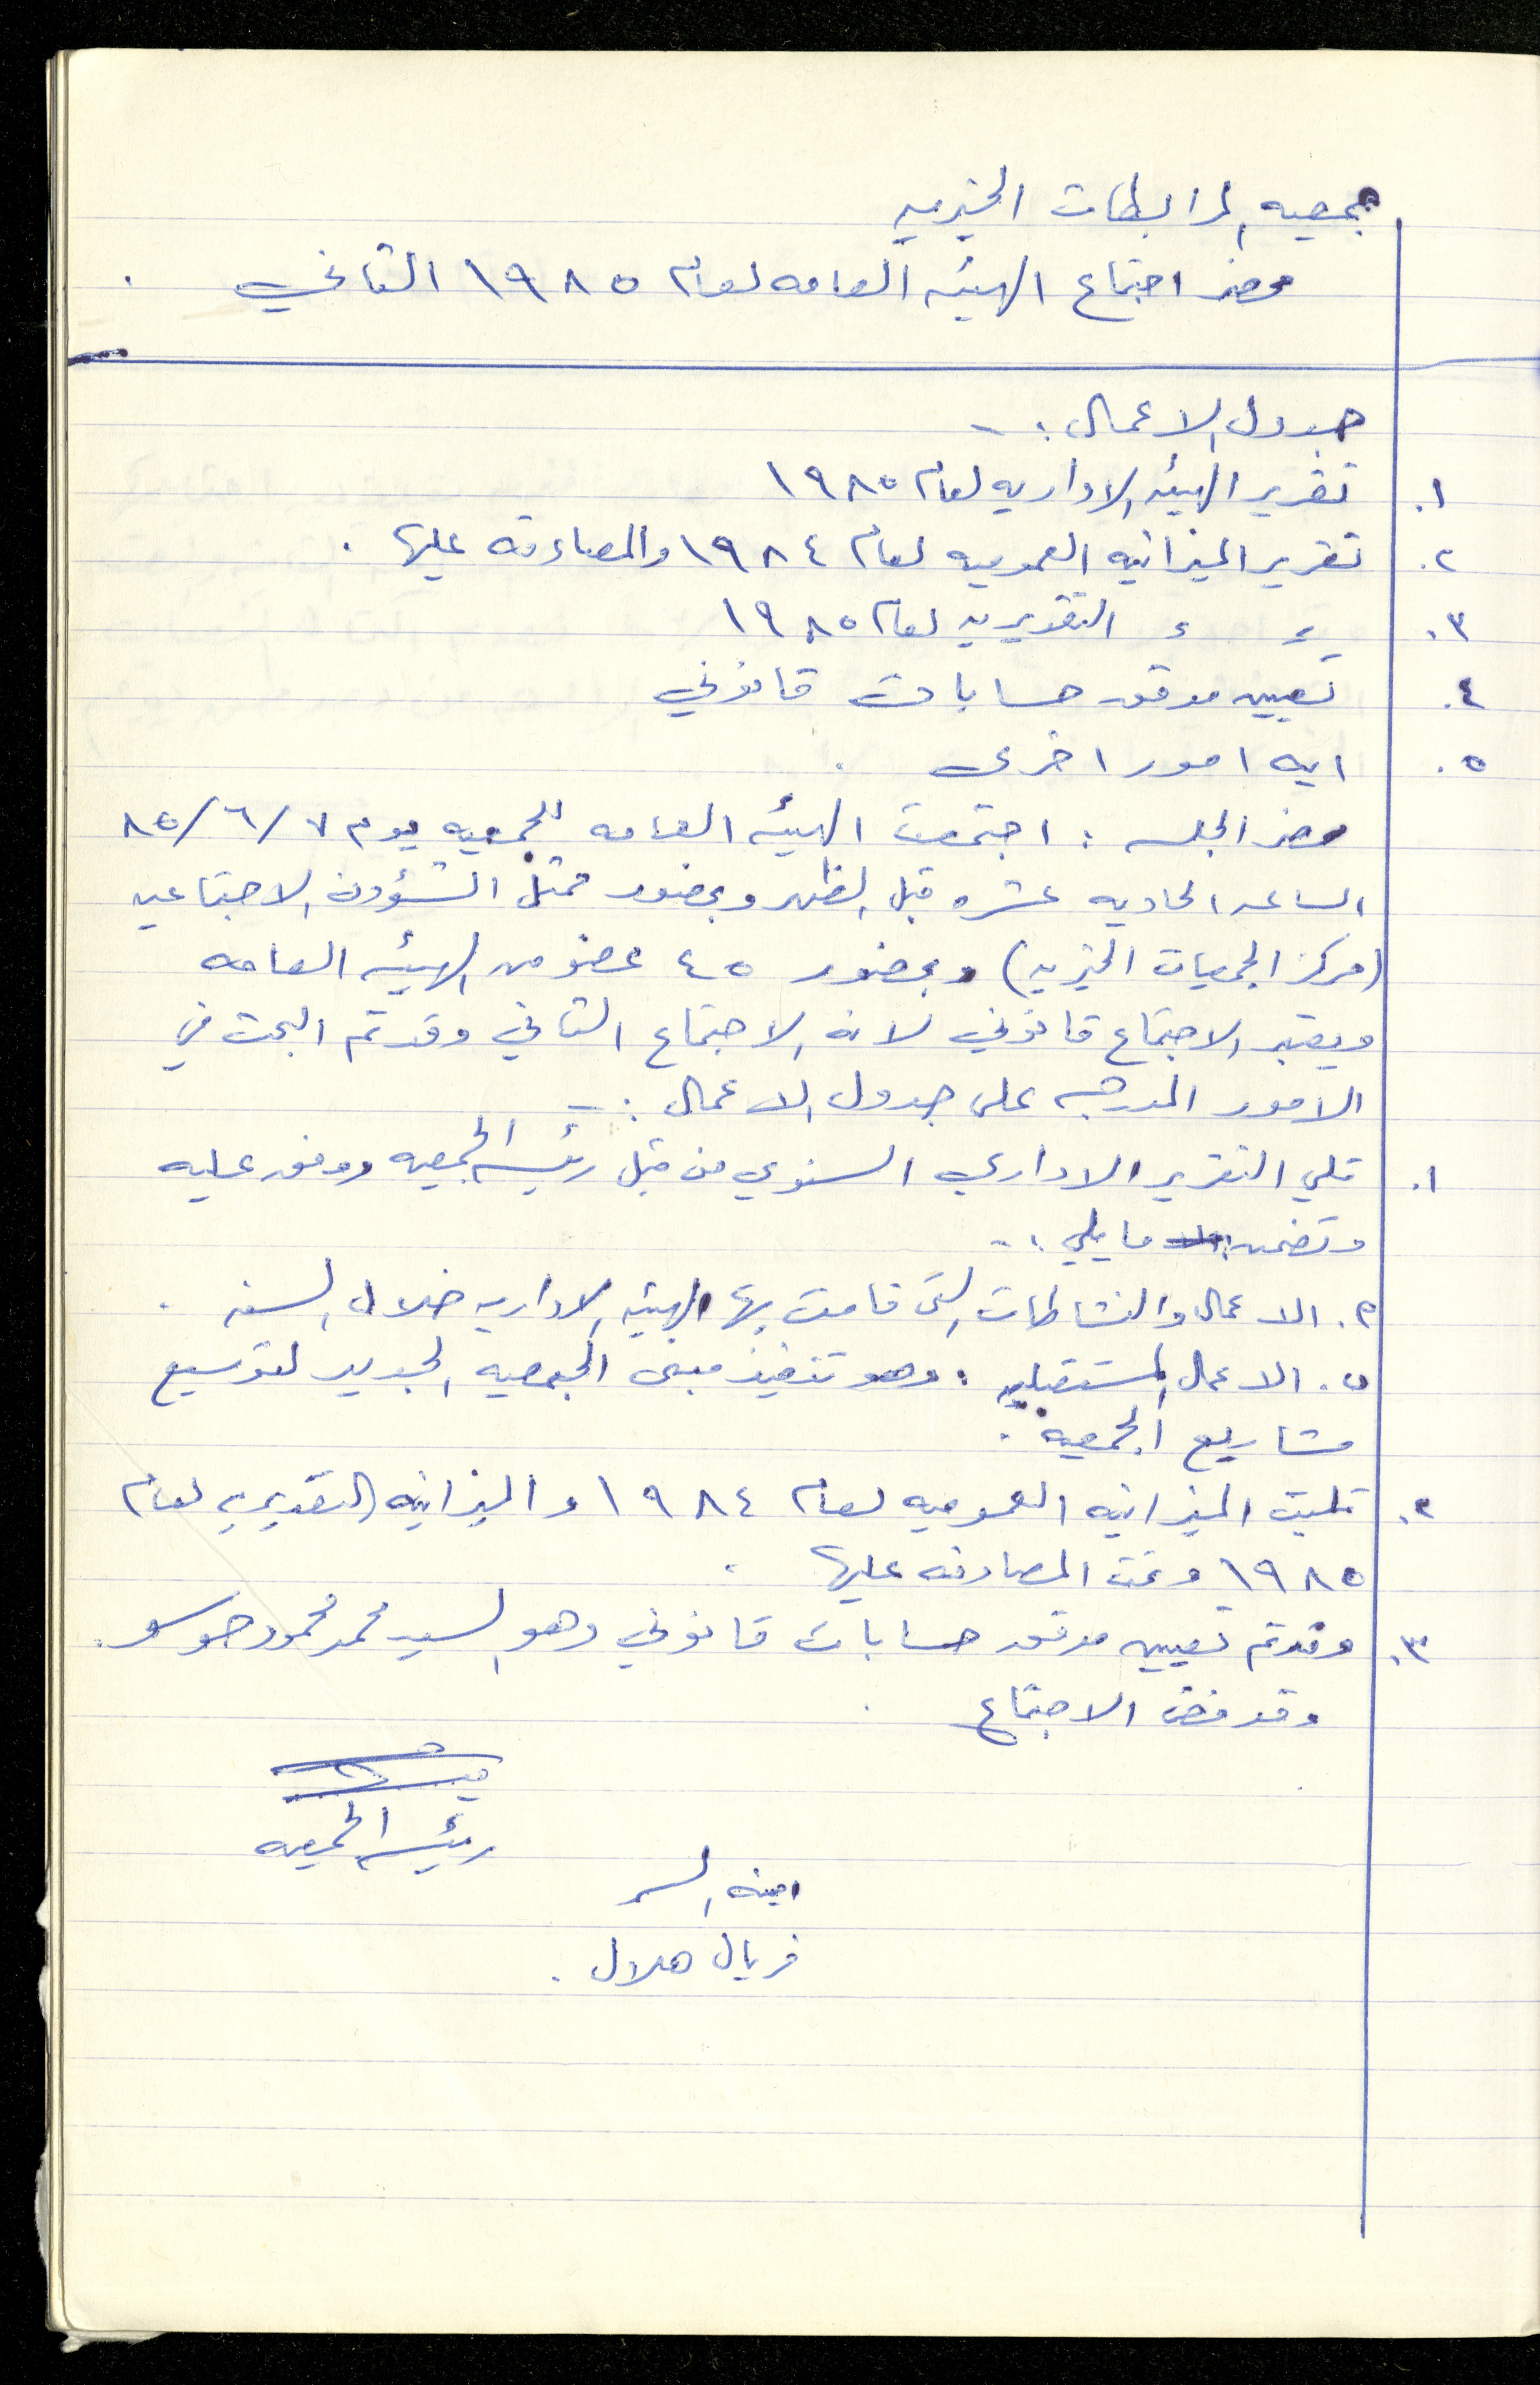 جمعيه المرابطات الخيريه
محضر اجتماع الهيئه العامه لعام ١٩٨٥ الثاني .
جدول الاعمال :-
١. تقرير الهيئه الاداريه لعام ١٩٨٥
٢. تقرير الميزانيه العموميه لعام ١٩٨٤ والمصادقه عليها .
٣. = = التقديريه لعام ١٩٨٥
٤. تعيين مدقق حسابات قانوني
٥. ايه امور اخرى .
محضر الجلسه : اجتمعت الهيئه العامه للجمعيه يوم ٧/٦/٨٥
الساعه الحاديه عشره قبل الظهر وبحضور ممثل الشؤون الاجتماعيه
(مركز الجمعيات الخيريه) وبحضور ٤٥ عضو من الهيئه العامه
ويعتبر الاجتماع قانوني لانه الاجتماع الثاني وقد تم البحث في
الامور المدرجه على جدول الاعمال :-
١. تلي التقرير الاداري السنوي من قبل رئيسه الجمعيه ووفق عليه
وتضمن ما يلي :-
٢. الاعمال والنشاطات التي قامت بها الهيئه الاداريه خلال السنه .
ب. الاعمال المستقبليه : وهو تنفيذ مبنى الجمعيه الجديد لتوسيع
مشاريع الجمعيه .
٢. تليت الميزانيه العموميه لعام ١٩٨٤ والميزانيه التقديريه لعام
١٩٨٥ وتمت المصادقه عليها .
٣. وقد تم تعيين مدقق حسابات قانوني وهو السيد محمد محمود حوسو .
وقد فض الاجتماع .
رئيسه الجمعيه
امينه السر
فريال هلال .